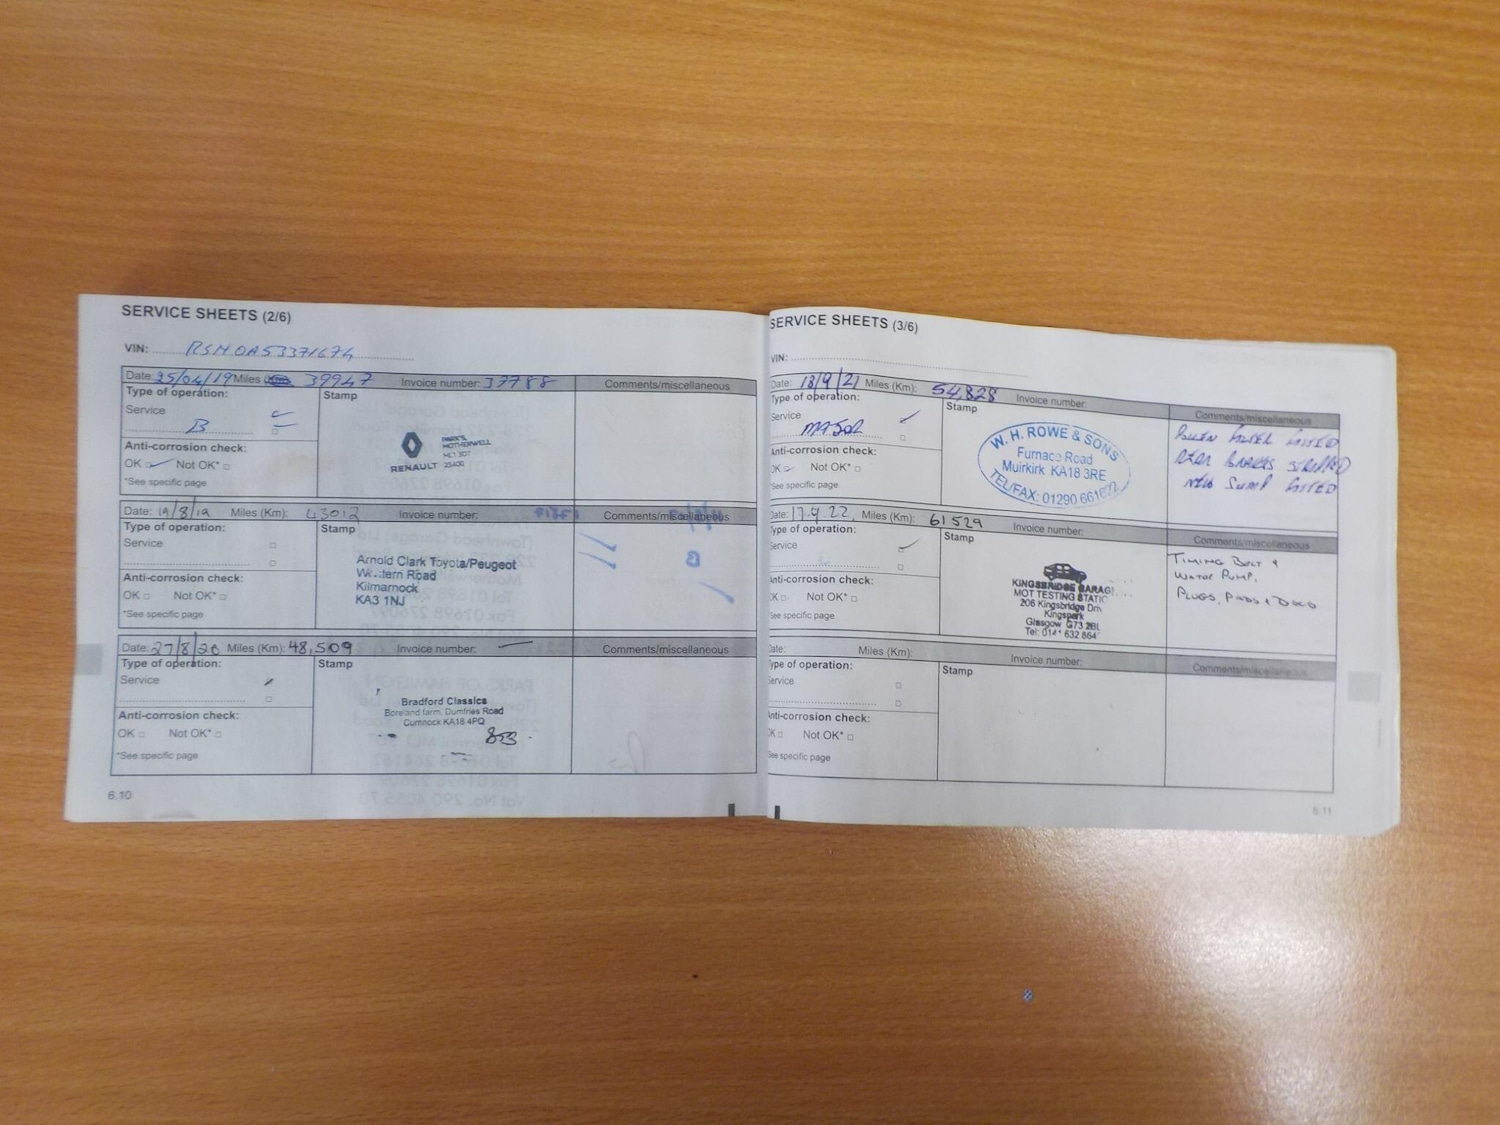 SERVICE SHEETS (2/6)
VIN: RSM0A53371674
Date: 25/04/19 Miles 39947 Invoice number: 37788 Comments/miscellaneous
Type of operation:
Service
B
Anti-corrosion check:
OK Not OK*
*See specific page
Stamp
PARK'S
MOTHERWELL
ML1
RENAULT 23400
Date: 19/8/19 Miles (Km): 43012 Invoice number: Comments/miscellaneous
Type of operation:
Service
Anti-corrosion check:
OK Not OK*
*See specific page
Stamp
Arnold Clark Toyota/Peugeot
Road
Kilmarnock
KA3 1NJ
Date: 27/8/20 Miles (Km): 48,509 Invoice number: Comments/miscellaneous
Type of operation:
Service
Anti-corrosion check:
OK Not OK*
*See specific page
Stamp
Bradford Classics
Boreland farm, Dumfries Road
Cumnock KA18 4PQ
6.10
SERVICE SHEETS (3/6)
VIN:
Date: 18/9/21 Miles (Km): 54,828 Invoice number: Comments/miscellaneous
Type of operation:
Service
MAJOR
Anti-corrosion check:
OK Not OK*
*See specific page
Stamp
W. H. ROWE & SONS
Furnace Road
Muirkirk KA18 3RE
TEL/FAX: 01290 661
POLLEN FILTER FITTED
REAR BRAKES STRIPPED
NEW SUMP FITTED
Date: 17.9.22 Miles (Km): 61529 Invoice number: Comments/miscellaneous
Type of operation:
Service
Anti-corrosion check:
OK Not OK*
See specific page
Stamp
KINGSBRIDGE GARAG
MOT TESTING STATI
206 Kingsbridge Driv
Kingspark
Glasgow G73 2BL
Tel: 0141 632 864
TIMING BELT &
WATER PUMP.
PLUGS, PADS &
Date: Miles (Km): Invoice number: Comments/miscellaneous
Type of operation:
Service
Anti-corrosion check:
OK Not OK*
See specific page
Stamp
6.11